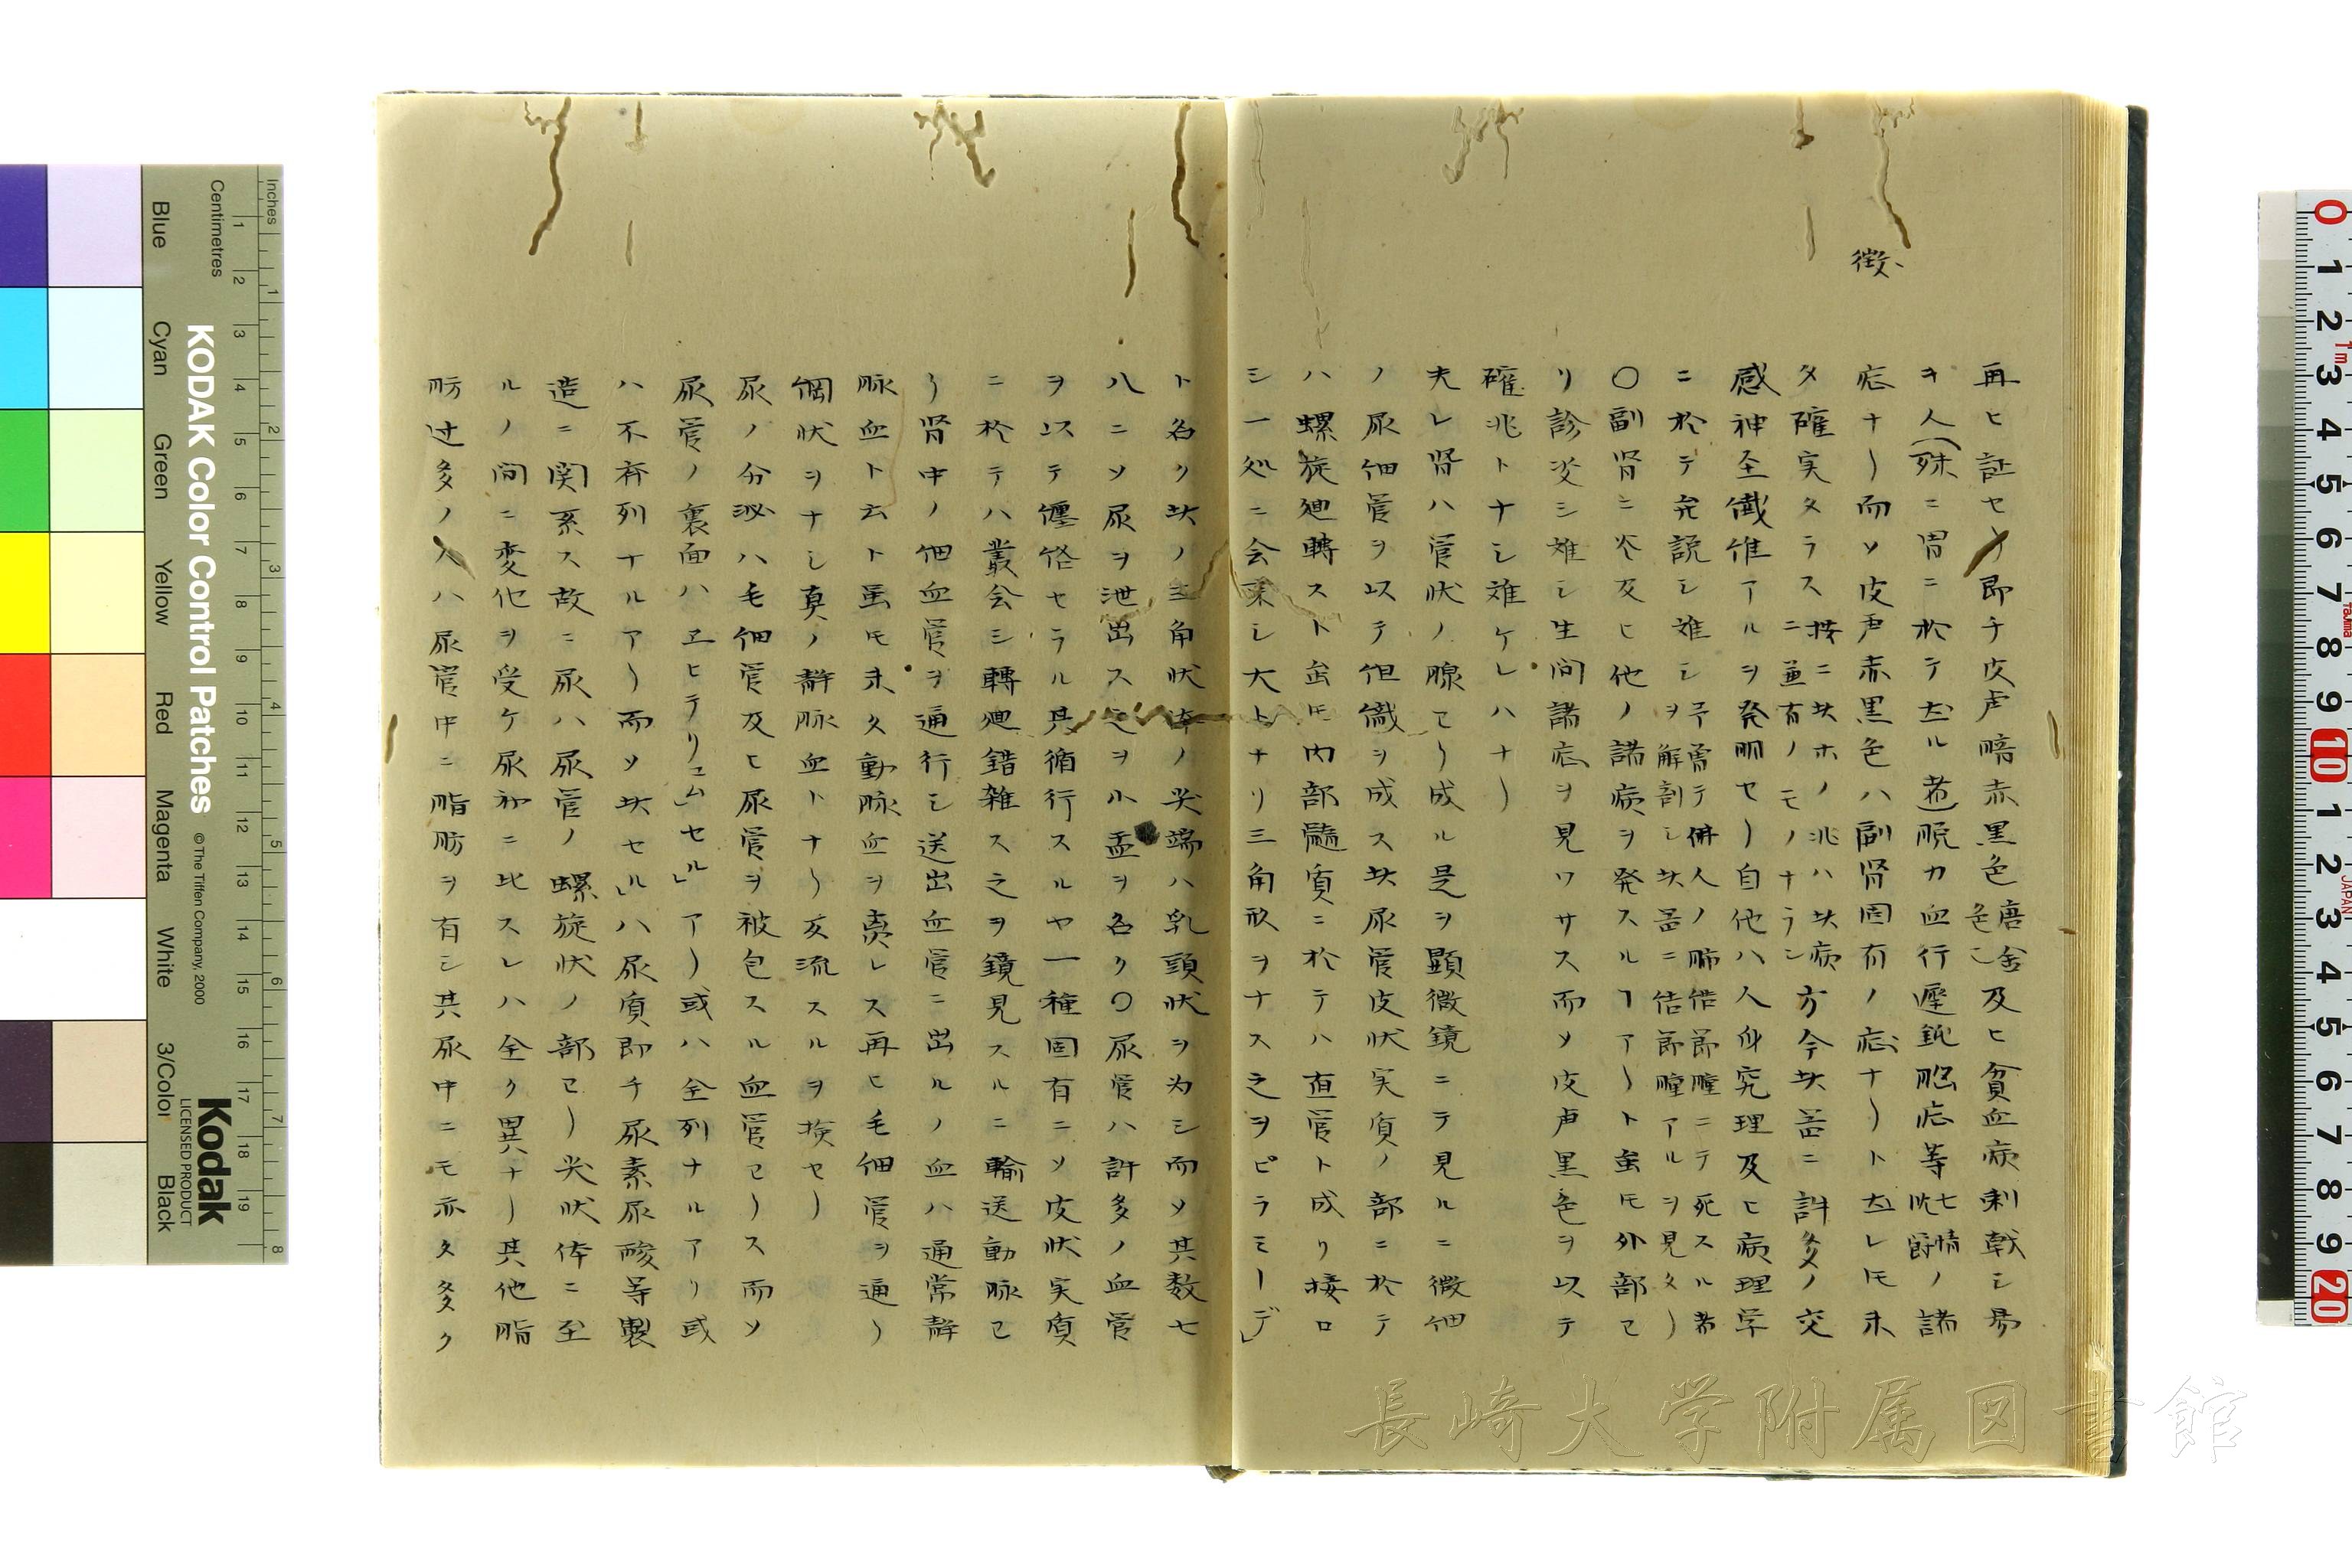 徴、
再ヒ証セリ即チ皮膚暗赤黒色唐金色ニ及ヒ貧血病刺戟シ易
キ人(殊ニ胃ニ於テ左ル者)脱力血行遅鈍脳症等忧七情欝ノ諸
症ナリ而ソ皮膚赤黒色ハ副腎固有ノ症ナリト左レ𪜈未
タ確実タラス按ニ此ホノ兆ハ此病ニ並有ノモノナラン方今此器ニ許多ノ交
感神至織維アルヲ発明セリ自他ハ人身究理及ヒ病理学
ニ於テ弁説シ難シ予曽テ佛人ノ肺結節腫ニテ死スル者ヲ解剖シ此器ニ結節腫アルヲ見タリ
〇副腎ニ炎及ヒ他ノ諸病ヲ発スルヿアリト虽𪜈外部ヨ
リ診察シ難シ生間諸症ヲ見ワサス而ソ皮膚黒色ヲ以テ
確兆トナシ難ケレハナリ
夫レ腎ハ管状ノ腺ヨリ成ル是ヲ顕微鏡ニテ見ルニ微細
ノ尿細管ヲ以テ但織ヲ成ス此尿管皮状実質ノ部ニ於テ
ハ螺旋廻轉スト虽𪜈内部髄質ニ於テハ直管ト成リ接口
シ一処ニ会束シ大トナリ三角形ヲナス之ヲピラミーデ」
ト名ク此ノ三角状体ノ尖端ハ乳頭状ヲ為シ而ソ其数七
八ニソ尿ヲ泄出ス之ヲ小盃ヲ名ク〇尿管ハ許多ノ血管
ヲ以テ纏絡セラル其循行スルヤ一種固有ニソ皮状実質
ニ於テハ叢会シ轉廻錯雑ス之ヲ鏡見スルニ輸送動脉ヨ
リ腎中ノ細血管ヲ通行シ送出血管ニ出ルノ血ハ通常静
脉血ト云ト虽𪜈未タ動脉血ヲ売レス再ヒ毛細管ヲ通リ
網状ヲナシ真ノ静脉血トナリ交流スルヲ検セリ
尿ノ分泌ハ毛細管及ヒ尿管ヲ被包スル血管ヨリス而ソ
尿管ノ裏面ハヱヒテリユム」セル」アリ或ハ全列ナルアリ或
ハ不斉列ナルアリ而ソ此セル」ハ尿質即チ尿素尿酸等製
造ニ関系ス故ニ尿ハ尿管ノ螺旋状ノ部ヨリ尖状体ニ至
ルノ間ニ変化ヲ受ケ尿初ニ比スレハ全ク異ナリ其他脂
肪过多ノ人ハ尿管中ニ脂肪ヲ有シ其尿中ニモ亦タ多ク
長崎大学附属図書館